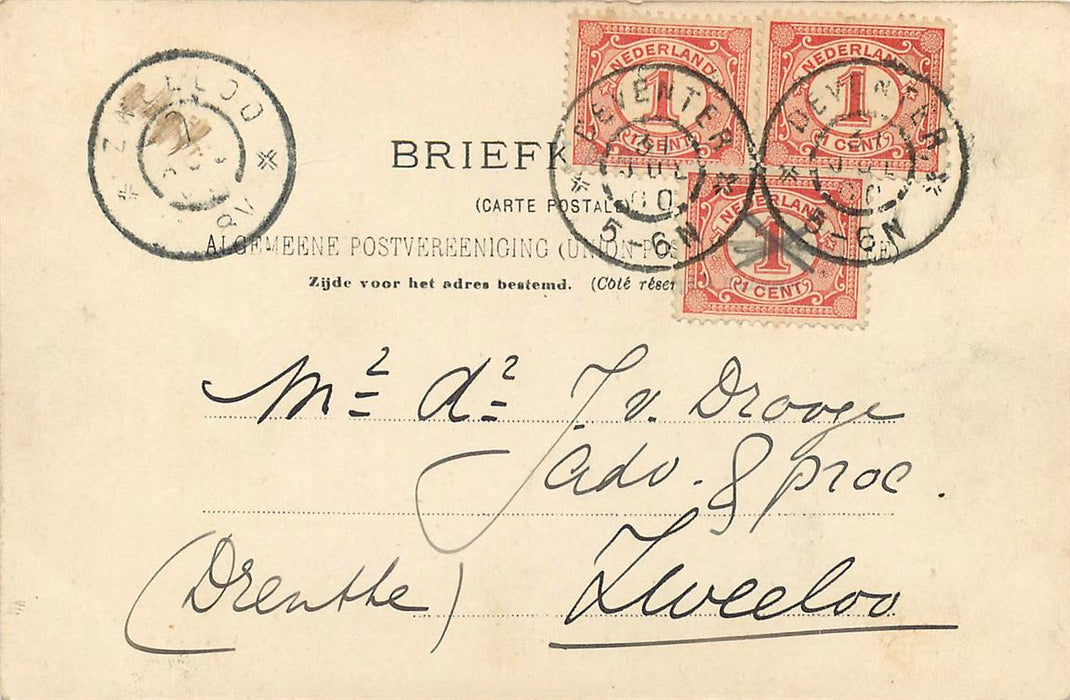 NEDERLAND
1
1 CENT
NEDERLAND
1
1 CENT
NEDERLAND
1
1 CENT
DEVENTER
31
JUL
00
5-6N
DEVENTER
JUL
00
5-6N
ZWEELOO
8V
BRIEFK
(CARTE POSTALE)
ALGEMEENE POSTVEREENIGING (UNION POS
Zijde voor het adres bestemd. (Côté réser
Mr dr J. v. Drooge
adv. & proc.
Zweeloo
(Drenthe)